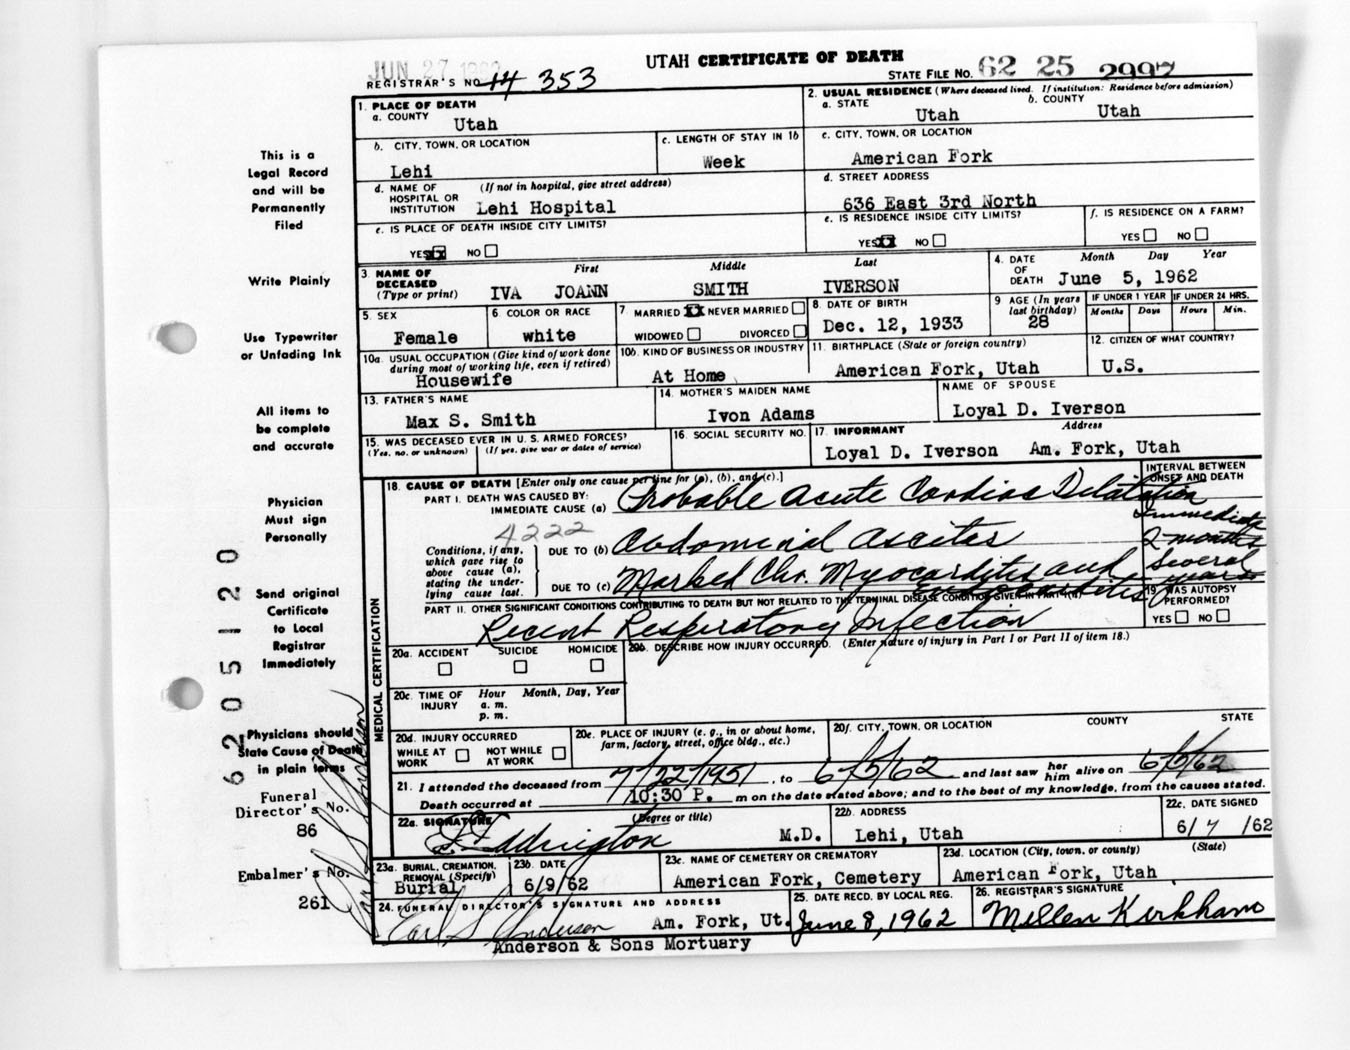 JUN 27 1962
UTAH CERTIFICATE OF DEATH
REGISTRAR'S NO. 14 353
STATE FILE NO. 62 25 2997
1. PLACE OF DEATH
a. COUNTY Utah
2. USUAL RESIDENCE (Where deceased lived. If institution: Residence before admission)
a. STATE Utah b. COUNTY Utah
b. CITY, TOWN, OR LOCATION Lehi
c. LENGTH OF STAY IN 1b Week
c. CITY, TOWN, OR LOCATION American Fork
d. NAME OF HOSPITAL OR INSTITUTION (If not in hospital, give street address) Lehi Hospital
d. STREET ADDRESS 636 East 3rd North
e. IS PLACE OF DEATH INSIDE CITY LIMITS?
YES XX NO
e. IS RESIDENCE INSIDE CITY LIMITS?
YES XX NO
f. IS RESIDENCE ON A FARM?
YES NO
3. NAME OF DECEASED (Type or print)
First Middle Last
IVA JOANN SMITH IVERSON
4. DATE OF DEATH Month Day Year
June 5, 1962
5. SEX Female
6. COLOR OR RACE white
7. MARRIED XX NEVER MARRIED
WIDOWED DIVORCED
8. DATE OF BIRTH Dec. 12, 1933
9 AGE (In years last birthday) 28
IF UNDER 1 YEAR Months Days
IF UNDER 24 HRS. Hours Min.
10a. USUAL OCCUPATION (Give kind of work done during most of working life, even if retired) Housewife
10b. KIND OF BUSINESS OR INDUSTRY At Home
11. BIRTHPLACE (State or foreign country) American Fork, Utah
12. CITIZEN OF WHAT COUNTRY? U.S.
13. FATHER'S NAME Max S. Smith
14. MOTHER'S MAIDEN NAME Ivon Adams
NAME OF SPOUSE Loyal D. Iverson
15. WAS DECEASED EVER IN U.S. ARMED FORCES?
(Yes, no, or unknown) (If yes, give war or dates of service)
16. SOCIAL SECURITY NO.
17. INFORMANT Address
Loyal D. Iverson Am. Fork, Utah
18. CAUSE OF DEATH [Enter only one cause per line for (a), (b), and (c).]
INTERVAL BETWEEN ONSET AND DEATH
PART I. DEATH WAS CAUSED BY:
IMMEDIATE CAUSE (a) Probable Acute Cardiac Dilatation
Immediate
4222
Conditions, if any, which gave rise to above cause (a), stating the underlying cause last.
DUE TO (b) Abdominal Ascites 2 months
DUE TO (c) Marked Chr. Myocarditis and
Several years
PART II. OTHER SIGNIFICANT CONDITIONS CONTRIBUTING TO DEATH BUT NOT RELATED TO THE TERMINAL DISEASE CONDITION GIVEN IN PART I(a)
Recent Respiratory Infection
19. WAS AUTOPSY PERFORMED?
YES NO
20a. ACCIDENT SUICIDE HOMICIDE
20b. DESCRIBE HOW INJURY OCCURRED. (Enter nature of injury in Part I or Part II of item 18.)
20c. TIME OF INJURY Hour Month, Day, Year
a. m.
p. m.
20d. INJURY OCCURRED
WHILE AT WORK NOT WHILE AT WORK
20e. PLACE OF INJURY (e. g., in or about home, farm, factory, street, office bldg., etc.)
20f. CITY, TOWN, OR LOCATION COUNTY STATE
21. I attended the deceased from 7/22/1951, to 6/5/62 and last saw her him alive on 6/5/62
Death occurred at 10:30 P. m on the date stated above; and to the best of my knowledge, from the causes stated.
22a. SIGNATURE (Degree or title)
Eddington M.D.
22b. ADDRESS Lehi, Utah
22c. DATE SIGNED 6/7 /62
23a. BURIAL, CREMATION, REMOVAL (Specify) Burial
23b. DATE 6/9/62
23c. NAME OF CEMETERY OR CREMATORY American Fork, Cemetery
23d. LOCATION (City, town, or county) (State)
American Fork, Utah
24. FUNERAL DIRECTOR'S SIGNATURE AND ADDRESS
Earl S Anderson Am. Fork, Ut.
Anderson & Sons Mortuary
25. DATE RECD. BY LOCAL REG. June 8, 1962
26. REGISTRAR'S SIGNATURE Mellen Kirkham
This is a
Legal Record
and will be
Permanently
Filed
Write Plainly
Use Typewriter
or Unfading Ink
All items to
be complete
and accurate
Physician
Must sign
Personally
Send original
Certificate
to Local
Registrar
Immediately
Physicians should
State Cause of Death
in plain terms
Funeral
Director's No.
86
Embalmer's No.
261
MEDICAL CERTIFICATION
6205120